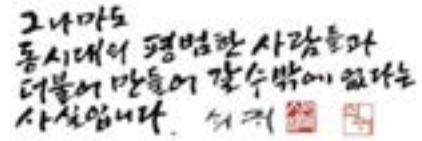 그나마도
동시대의 평범한 사람들과
더불어 만들어 갈 수밖에 없다는
사실입니다.